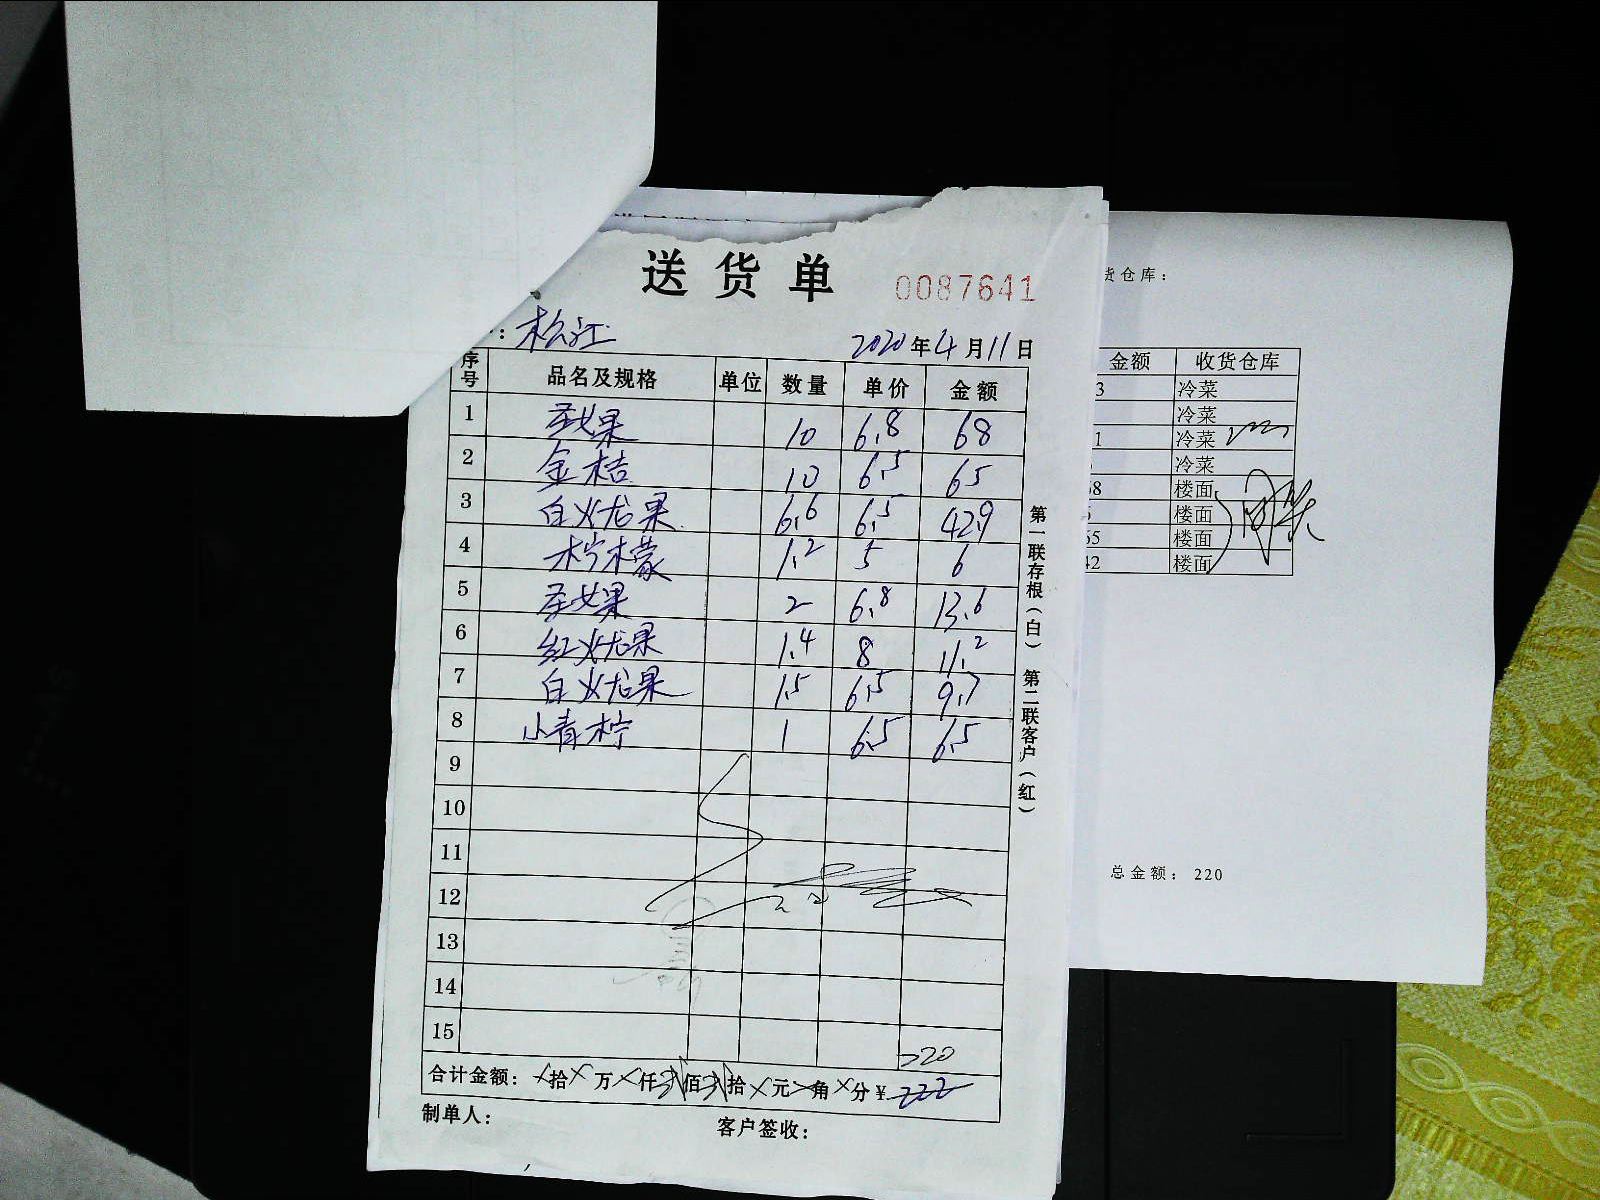 送货单 0087641
: 松江 2020年4月11日
序号 品名及规格 单位 数量 单价 金额
1 圣女果 10 6.8 68
2 金桔 10 6.5 65
3 白火龙果 6.6 6.5 42.9
4 柠檬 1.2 5 6
5 圣女果 2 6.8 13.6
6 红火龙果 1.4 8 11.2
7 白火龙果 1.5 6.5 9.7
8 小青柠 1 6.5 6.5
9
10
11
12
13
14
15
220
合计金额: 拾 万 仟 佰 拾 元 角 分 ¥ 222
制单人: 客户签收:
第一联存根(白) 第二联客户(红)
货仓库:
金额 收货仓库
3 冷菜
冷菜
1 冷菜
冷菜
68 楼面
楼面
65 楼面
42 楼面
总金额: 220